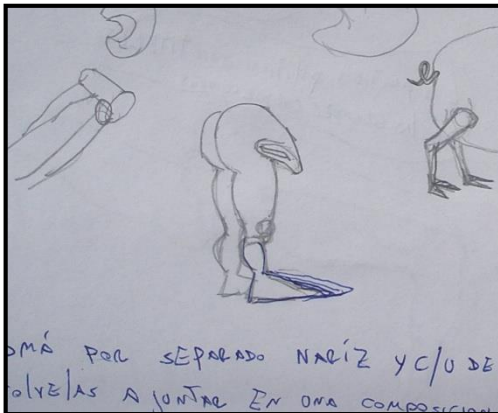 OMÁ POR SEPARADO NARÍZ Y C/U DE
OLVE/AS A JUNTAR EN UNA COMPOSICION